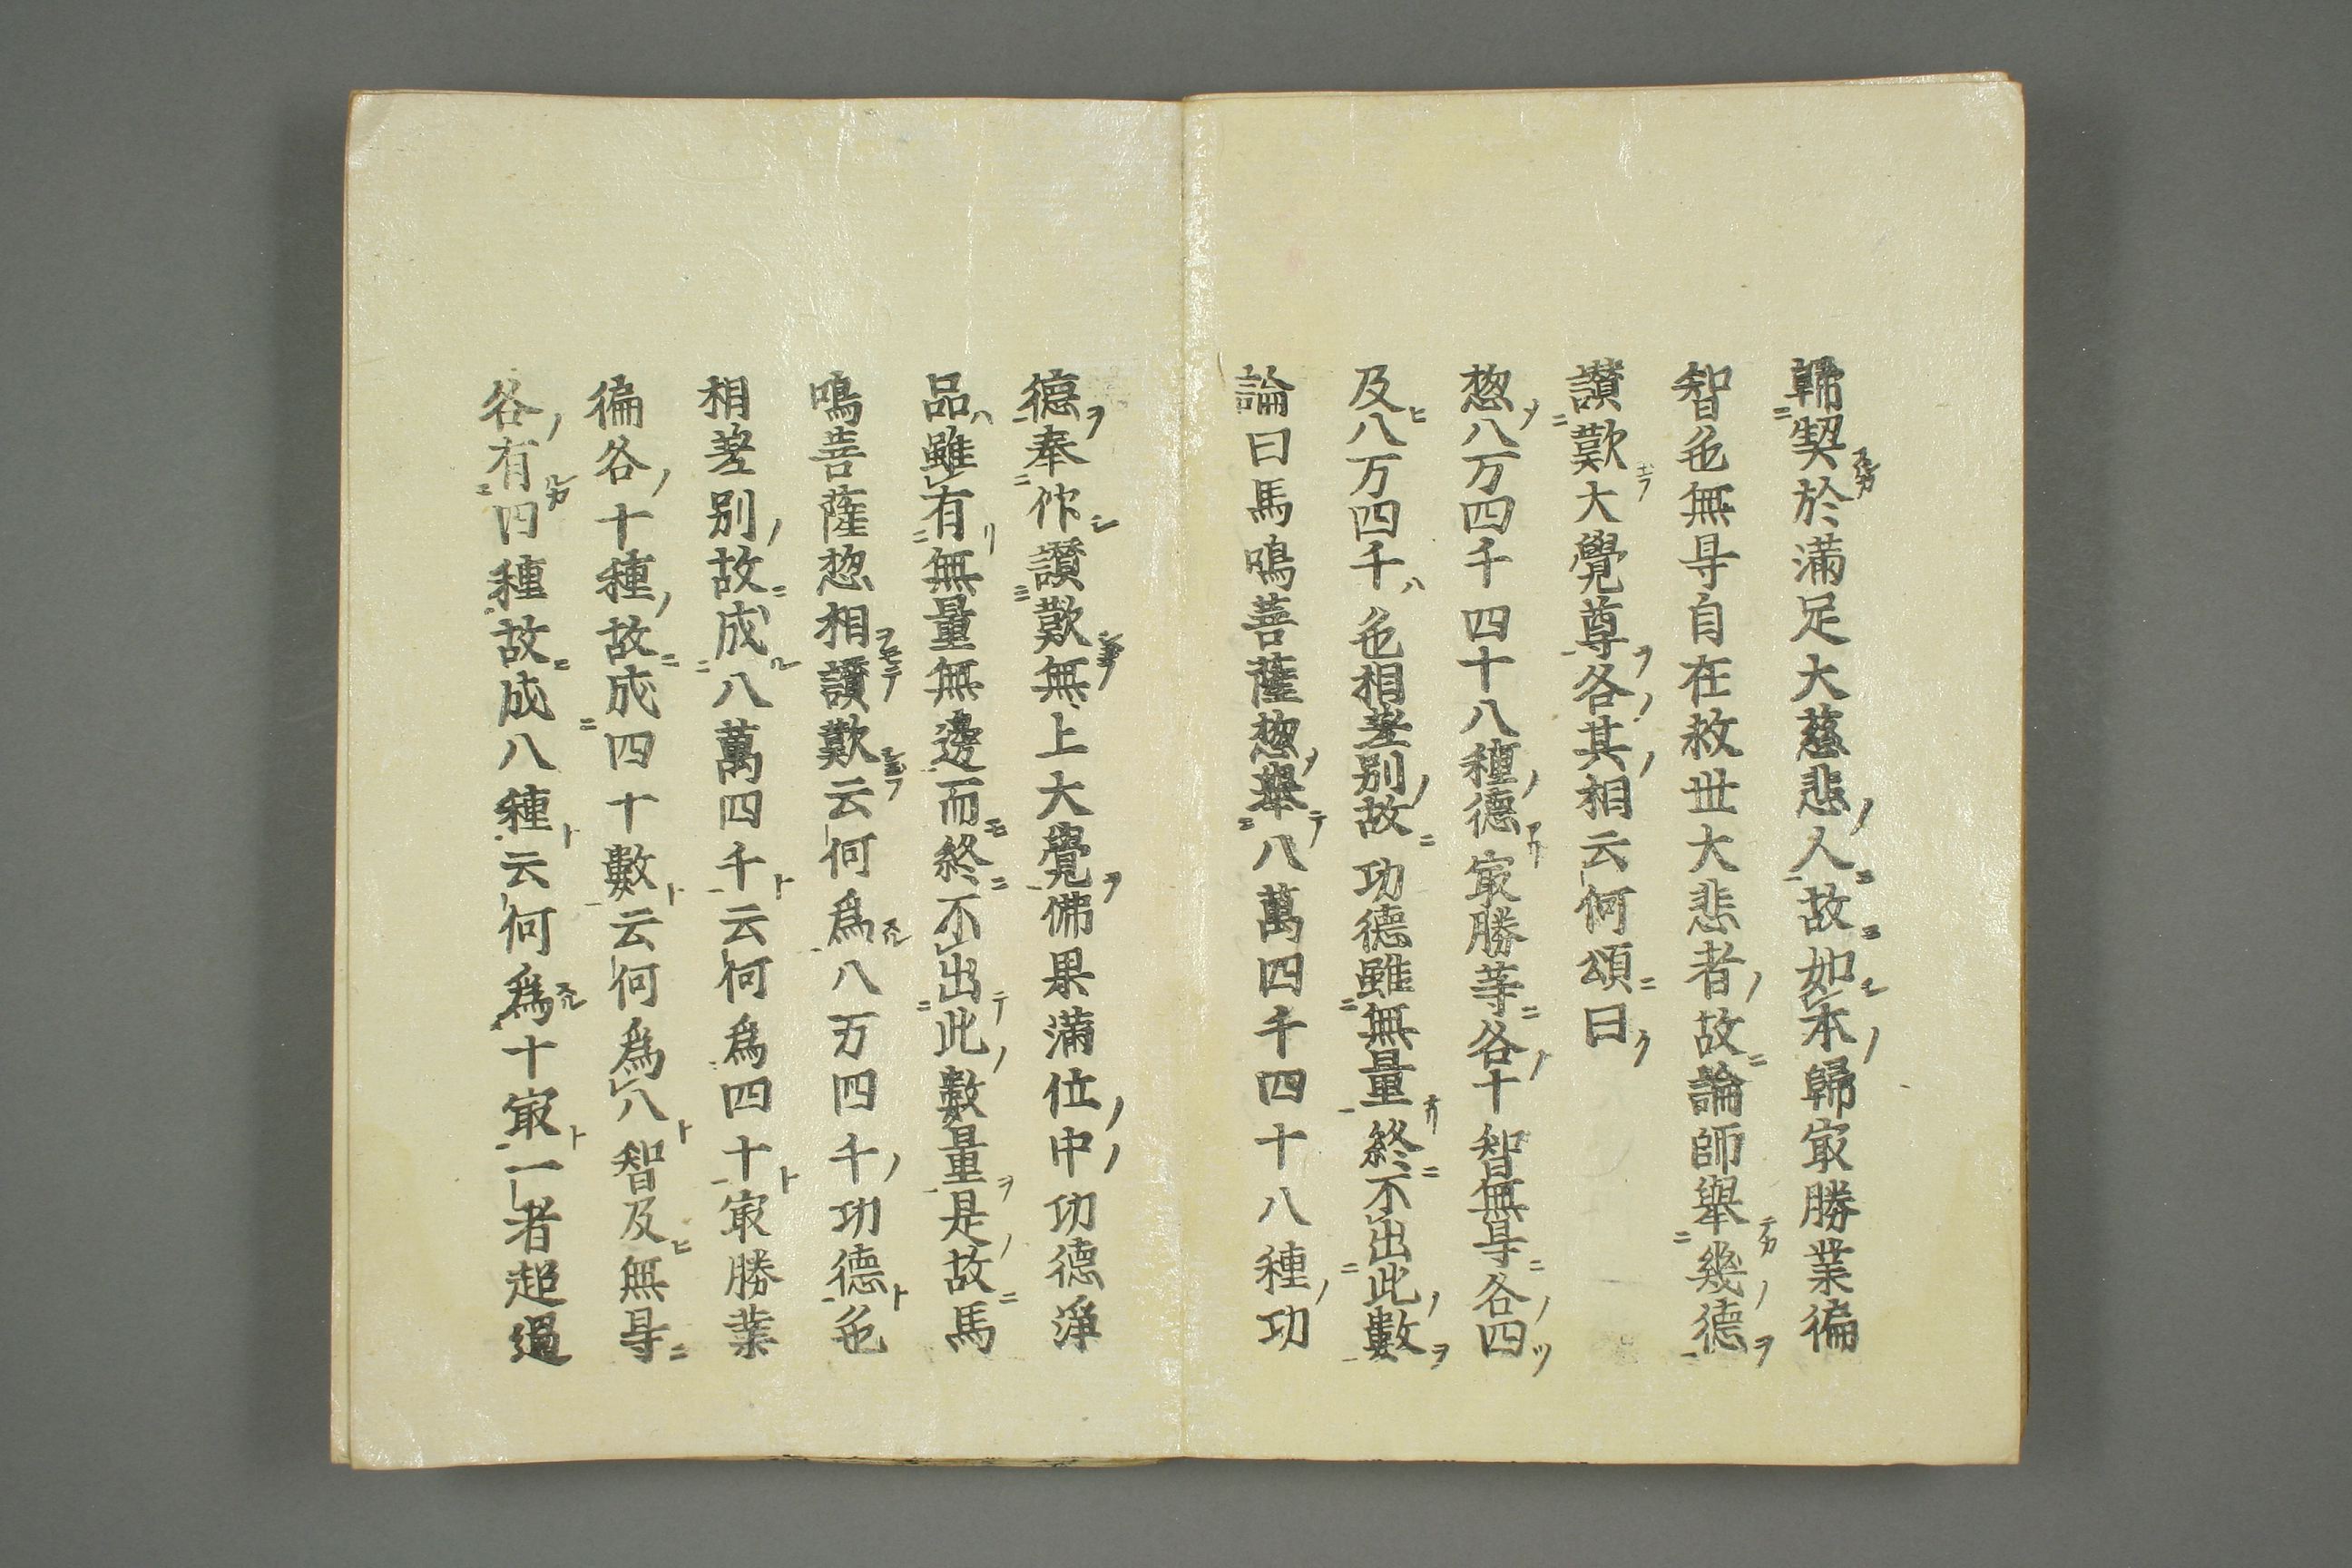 歸契於滿足大慈悲人故如本歸㝡勝業徧
智色無㝵自在救世大悲者故論師舉幾德
讃歎大覺尊各其相云何頌曰
惣八万四千四十八種德㝡勝等各十智無㝵各四
及八万四千色相差別故功德雖無量終不出此數
論曰馬鳴菩薩惣舉八萬四千四十八種功
德奉作讃歎無上大覺佛果滿位中功德淨
品雖有無量無邊而終不出此數量是故馬
鳴菩薩惣相讃歎云何爲八万四千功德色
相差別故成八萬四千云何爲四十㝡勝業
徧各十種故成四十數云何爲八智及無㝵
各有四種故成八種云何爲十㝡一者超過